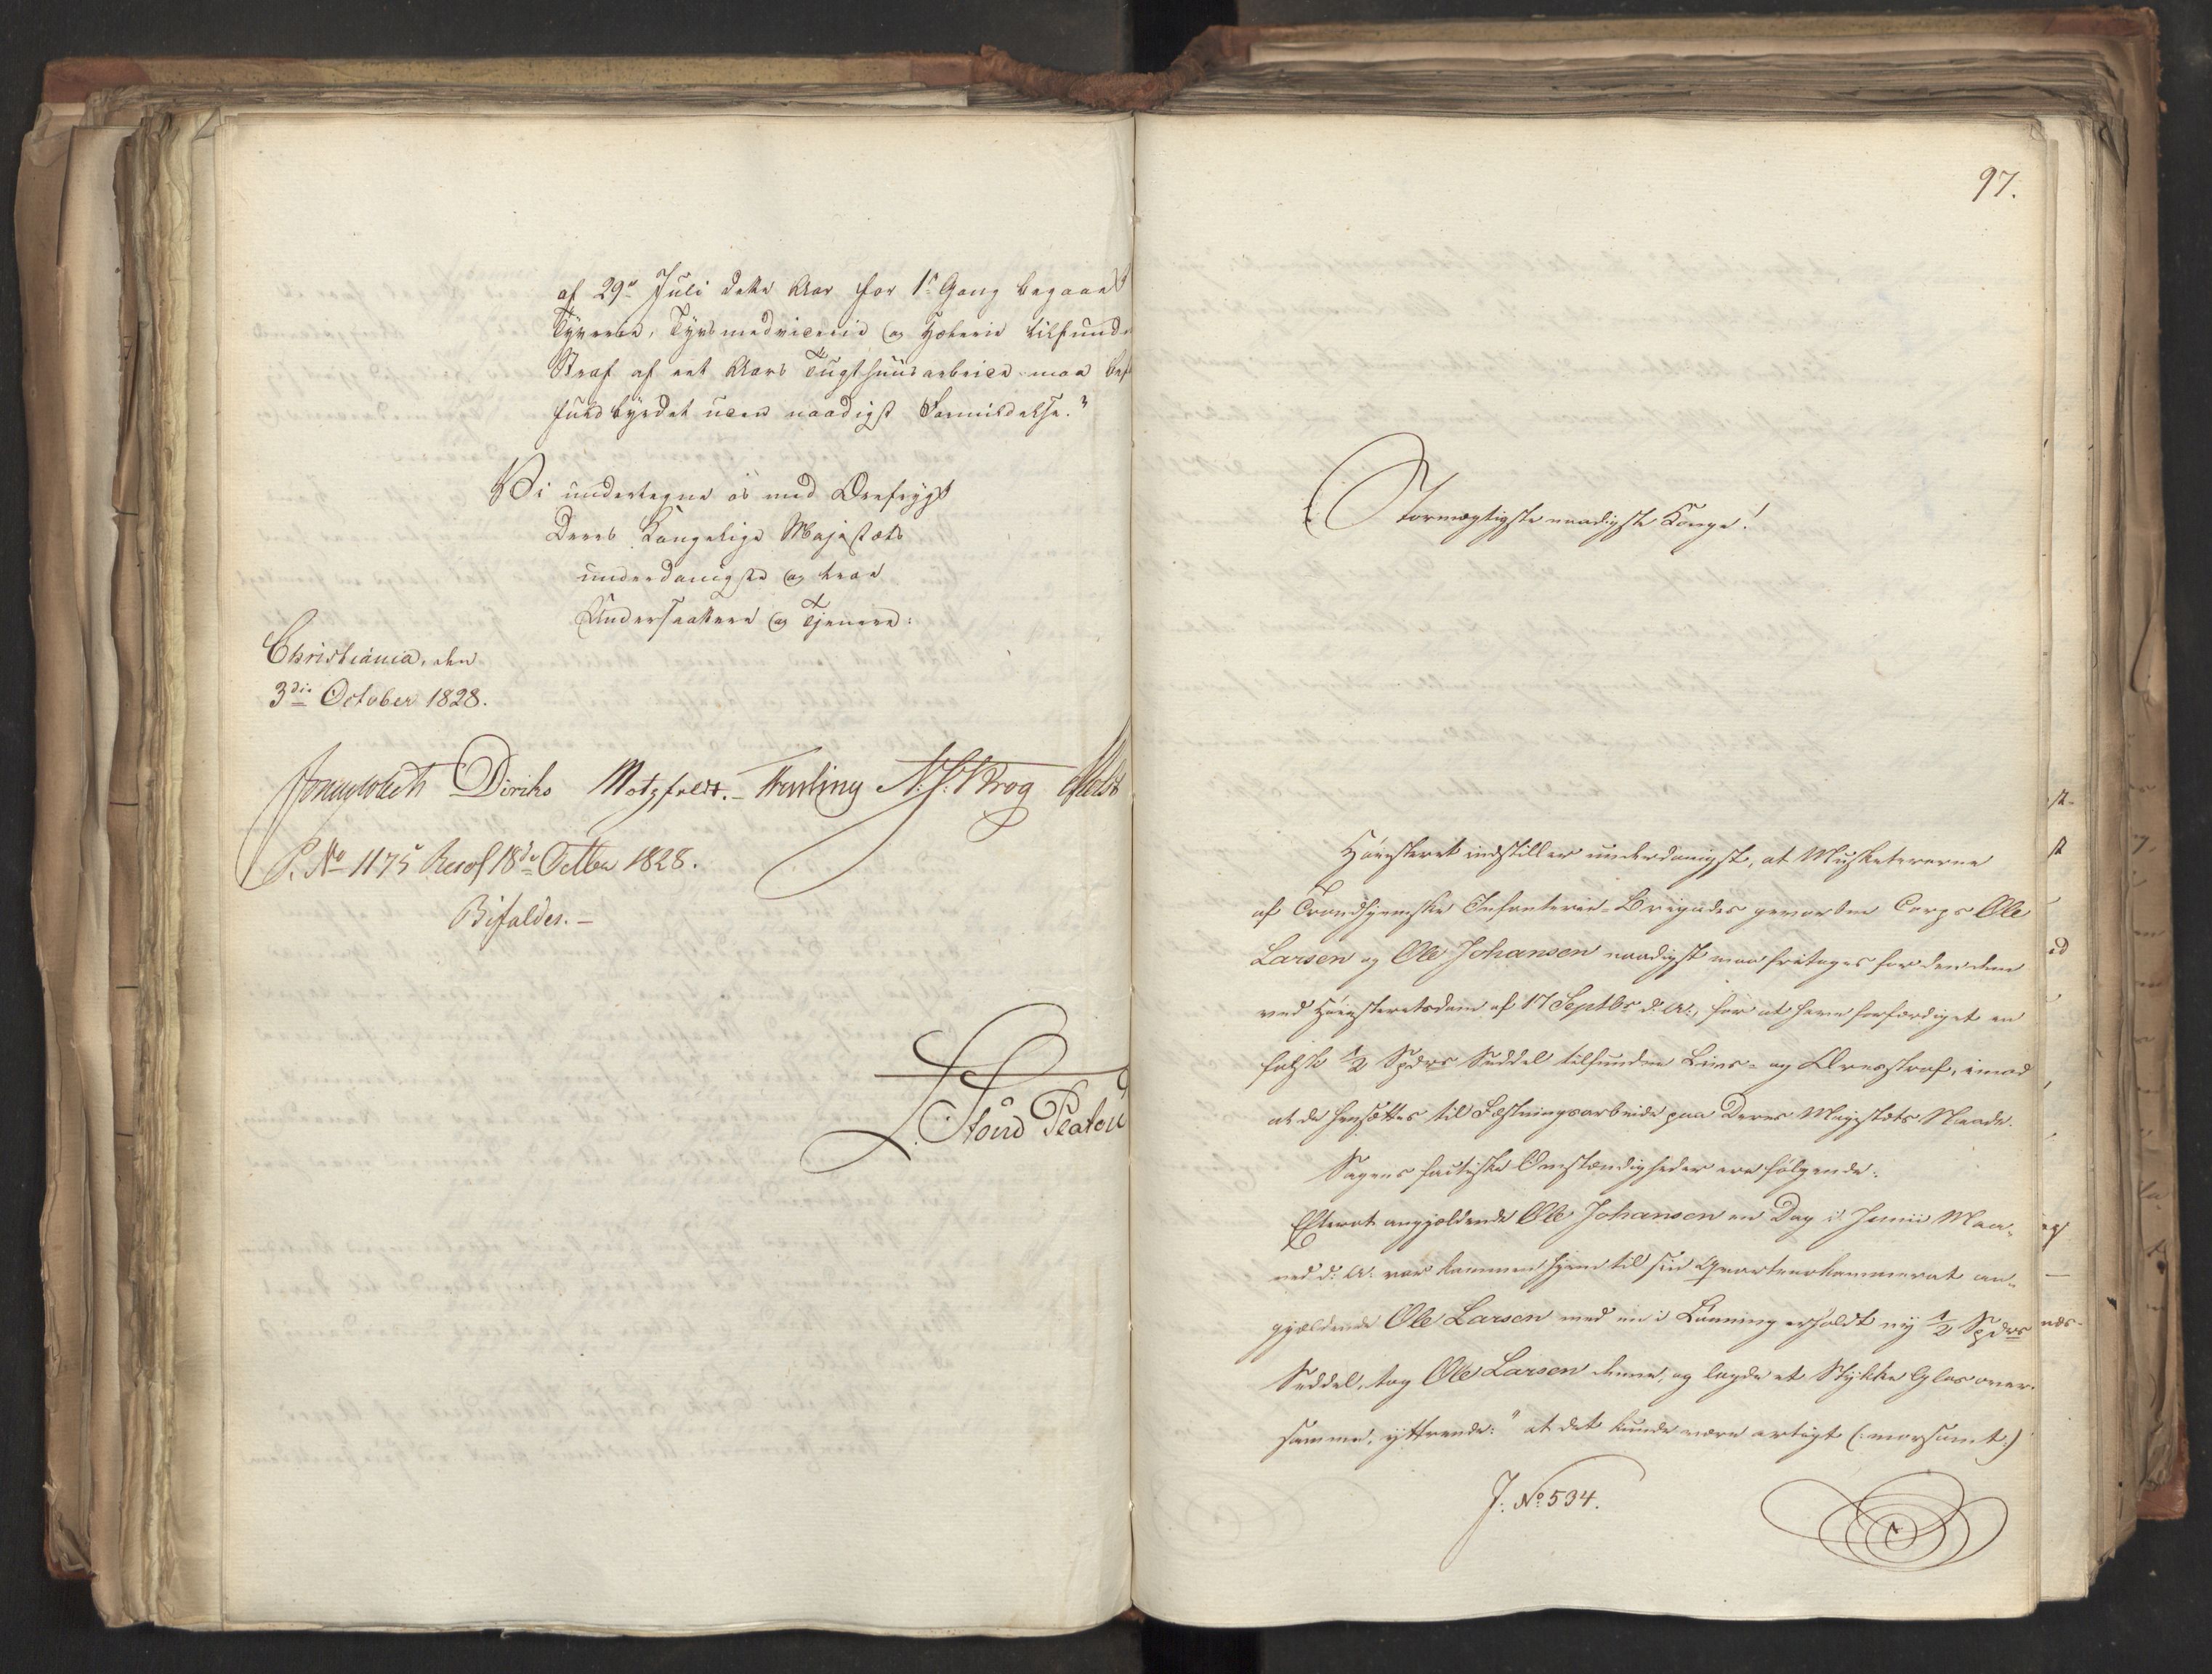 af 29de Juli dette Aar for 1ste Gang begaaet
Tyverie, Tyvsmedviderie og Hælerie tilfundne
Straf af eet Aars Tugthuusarbeide maa
fuldbyrdet uden naadigst Formildelse."
Vi undertegne os med Ærefrygt
Deres Kongelige Majestæts
underdanigste og troe
Undersaattere og Tjenere:
Christiania, den
3die October 1828.
Diriks Motzfeldt. N. J. Krog Holst
P. No 1175 Resol 18de Octber 1828.
Bifaldes. -
Stoud Platou
97.
Stormægtigste naadigste Konge!
Høiesteret indstiller underdanigst, at Musketererne
af Trondhjemske Infanterie-Brigades gevorbne Corps Ole
Larsen og Ole Johansen naadigst maa fritages for den dem
ved Høiesteretsdom af 17 Septbr d: A:, for at have forfærdiget en
falsk ½ Spdrs Seddel tilfundne Livs- og Æresstraf, imod
at de hensættes til Fæstningsarbeide paa Deres Majestæts Naade.
Sagens factiske Omstændigheder ere følgende:
Efterat angjældende Ole Johansen en Dag i Junii Maa-
ned d: A: var kommen hjem til sin Qvarteerkammerat an-
gjældende Ole Larsen med en i Lønning erholdt ny ½ Spdrs
Seddel, tog Ole Larsen denne, og lagde et Stykke Glas over
samme, yttrende: "at det kunde være artigt (: morsomt :)
J: No 534.